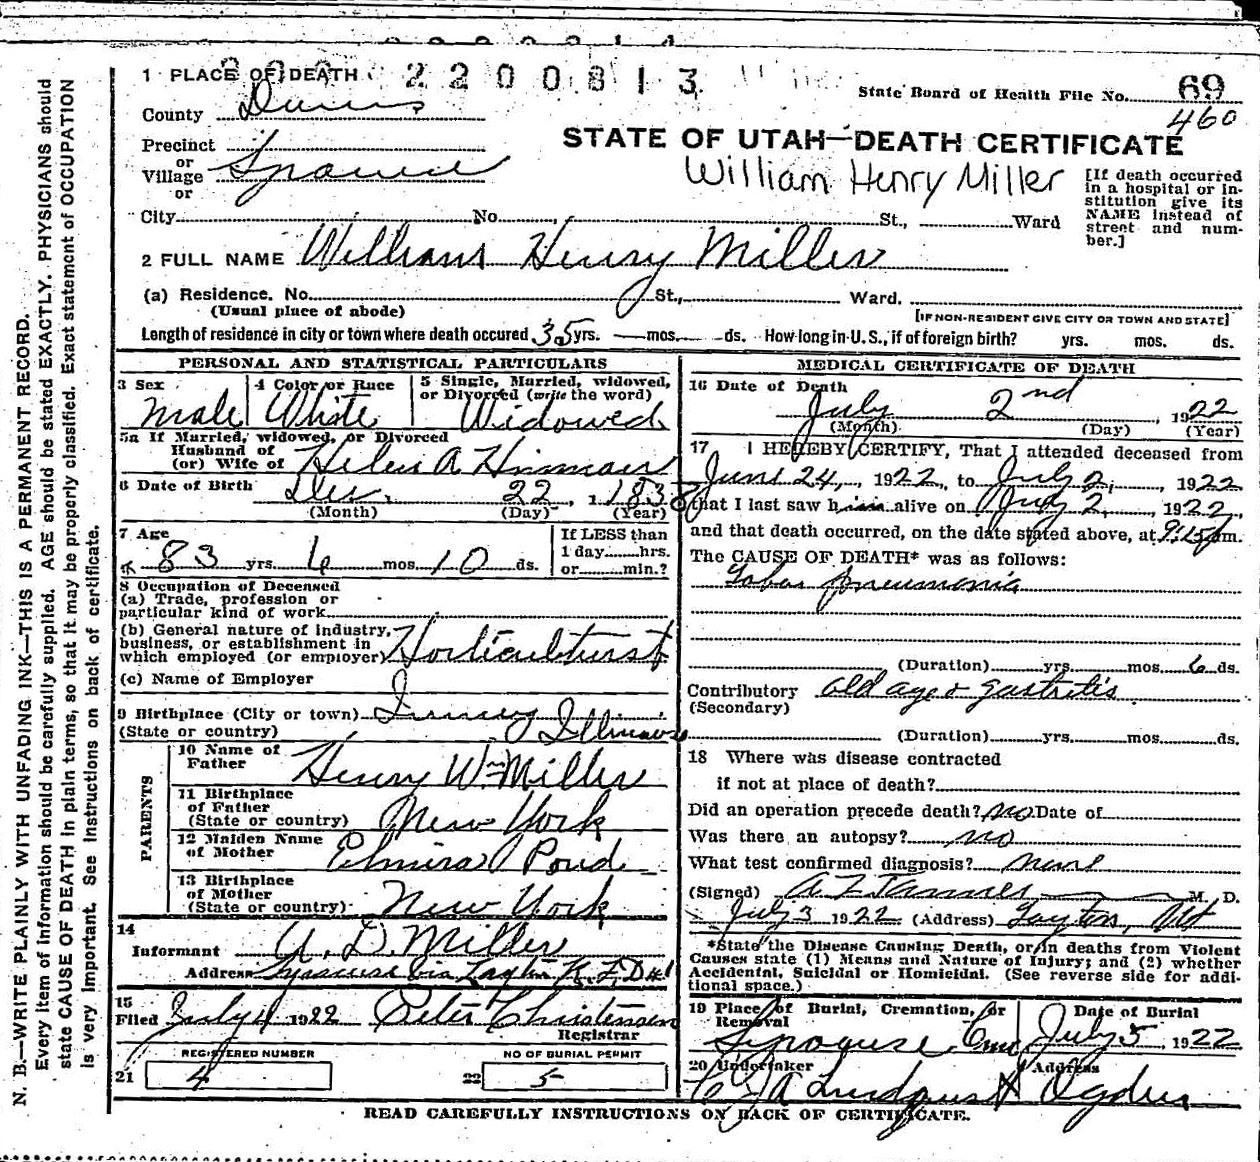 1 PLACE OF DEATH 2200813
State Board of Health File No. 69
460
County Davis
STATE OF UTAH—DEATH CERTIFICATE
Precinct
or
Village
or
William Henry Miller
[If death occurred in a hospital or institution give its NAME instead of street and number.]
City No. St., Ward
2 FULL NAME William Henry Miller
(a) Residence. No. St., Ward.
(Usual place of abode)
[IF NON-RESIDENT GIVE CITY OR TOWN AND STATE]
Length of residence in city or town where death occured 35 yrs. — mos. — ds. How long in U. S., if of foreign birth? yrs. mos. ds.
PERSONAL AND STATISTICAL PARTICULARS
3 Sex
Male
4 Color or Race
White
5 Single, Married, widowed,
or Divorced (write the word)
Widowed
5a If Married, widowed, or Divorced
Husband of
(or) Wife of Helen A Hinman
6 Date of Birth Dec. 22, 1838
(Month) (Day) (Year)
7 Age
83 yrs 6 mos. 10 ds.
If LESS than
1 day hrs.
or min.?
8 Occupation of Deceased
(a) Trade, profession or
particular kind of work
(b) General nature of industry,
business, or establishment in
which employed (or employer) Horticulturist
(c) Name of Employer
9 Birthplace (City or town) Quincy
(State or country) Illinois
PARENTS
10 Name of
Father Henry Wm Miller
11 Birthplace
of Father
(State or country) New York
12 Maiden Name
of Mother Elmira Pond
13 Birthplace
of Mother
(State or country) New York
14
Informant A. D. Miller
Address Syracuse via Layton R. F. D #1
15
Filed July 4 1922 Peter Christensen
Registrar
REGISTERED NUMBER
21 4
NO OF BURIAL PERMIT
22 5
MEDICAL CERTIFICATE OF DEATH
16 Date of Death
July 2nd, 1922
(Month) (Day) (Year)
17 I HEREBY CERTIFY, That I attended deceased from
June 24, 1922, to July 2, 1922
that I last saw him alive on July 2, 1922,
and that death occurred, on the date stated above, at 9:15 p.m.
The CAUSE OF DEATH* was as follows:
Lobar pneumonia
(Duration) yrs. mos. 6 ds.
Contributory Old age & gastritis
(Secondary)
(Duration) yrs. mos. ds.
18 Where was disease contracted
if not at place of death?
Did an operation precede death? no Date of
Was there an autopsy? no
What test confirmed diagnosis? none
(Signed) A Z Tanner M. D.
July 3 1922 (Address) Layton, Ut
*State the Disease Causing Death, or in deaths from Violent
Causes state (1) Means and Nature of Injury; and (2) whether
Accidental, Suicidal or Homicidal. (See reverse side for additional space.)
19 Place of Burial, Cremation, or
Removal
Syracuse Cem
Date of Burial
July 5, 1922
20 Undertaker
C J A Lindquist
Address
Ogden
READ CAREFULLY INSTRUCTIONS ON BACK OF CERTIFICATE.
N. B.—WRITE PLAINLY WITH UNFADING INK—THIS IS A PERMANENT RECORD.
Every item of information should be carefully supplied. AGE should be stated EXACTLY. PHYSICIANS should
state CAUSE OF DEATH in plain terms, so that it may be properly classified. Exact statement of OCCUPATION
is very important. See instructions on back of certificate.